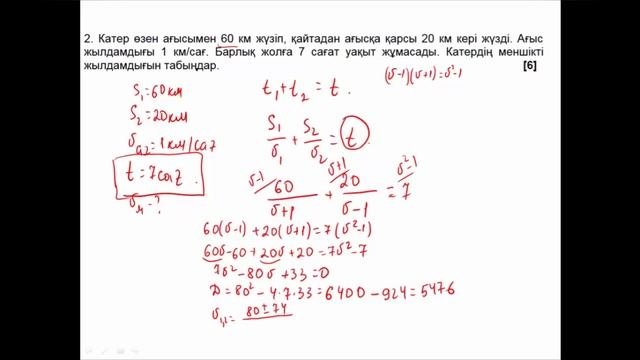 2. Катер өзен ағысымен 60 км жүзіп, қайтадан ағысқа қарсы 20 км кері жүзді. Ағыс
жылдамдығы 1 км/сағ. Барлық жолға 7 сағат уақыт жұмсады. Катердің меншікті
жылдамдығын табыңдар. [6]
S₁=60км
S₂=20км
υағ=1км/сағ
t=7сағ
υм-?
t₁+t₂=t.
(υ-1)(υ+1)=υ²-1
S₁/υ₁ + S₂/υ₂ = t
υ-1 υ+1 υ²-1
60/(υ+1) + 20/(υ-1) = 7
60(υ-1)+20(υ+1)=7(υ²-1)
60υ-60+20υ+20=7υ²-7
7υ²-80υ+33=0
D=80²-4·7·33=6400-924=5476
υ₁,₂= 80±74